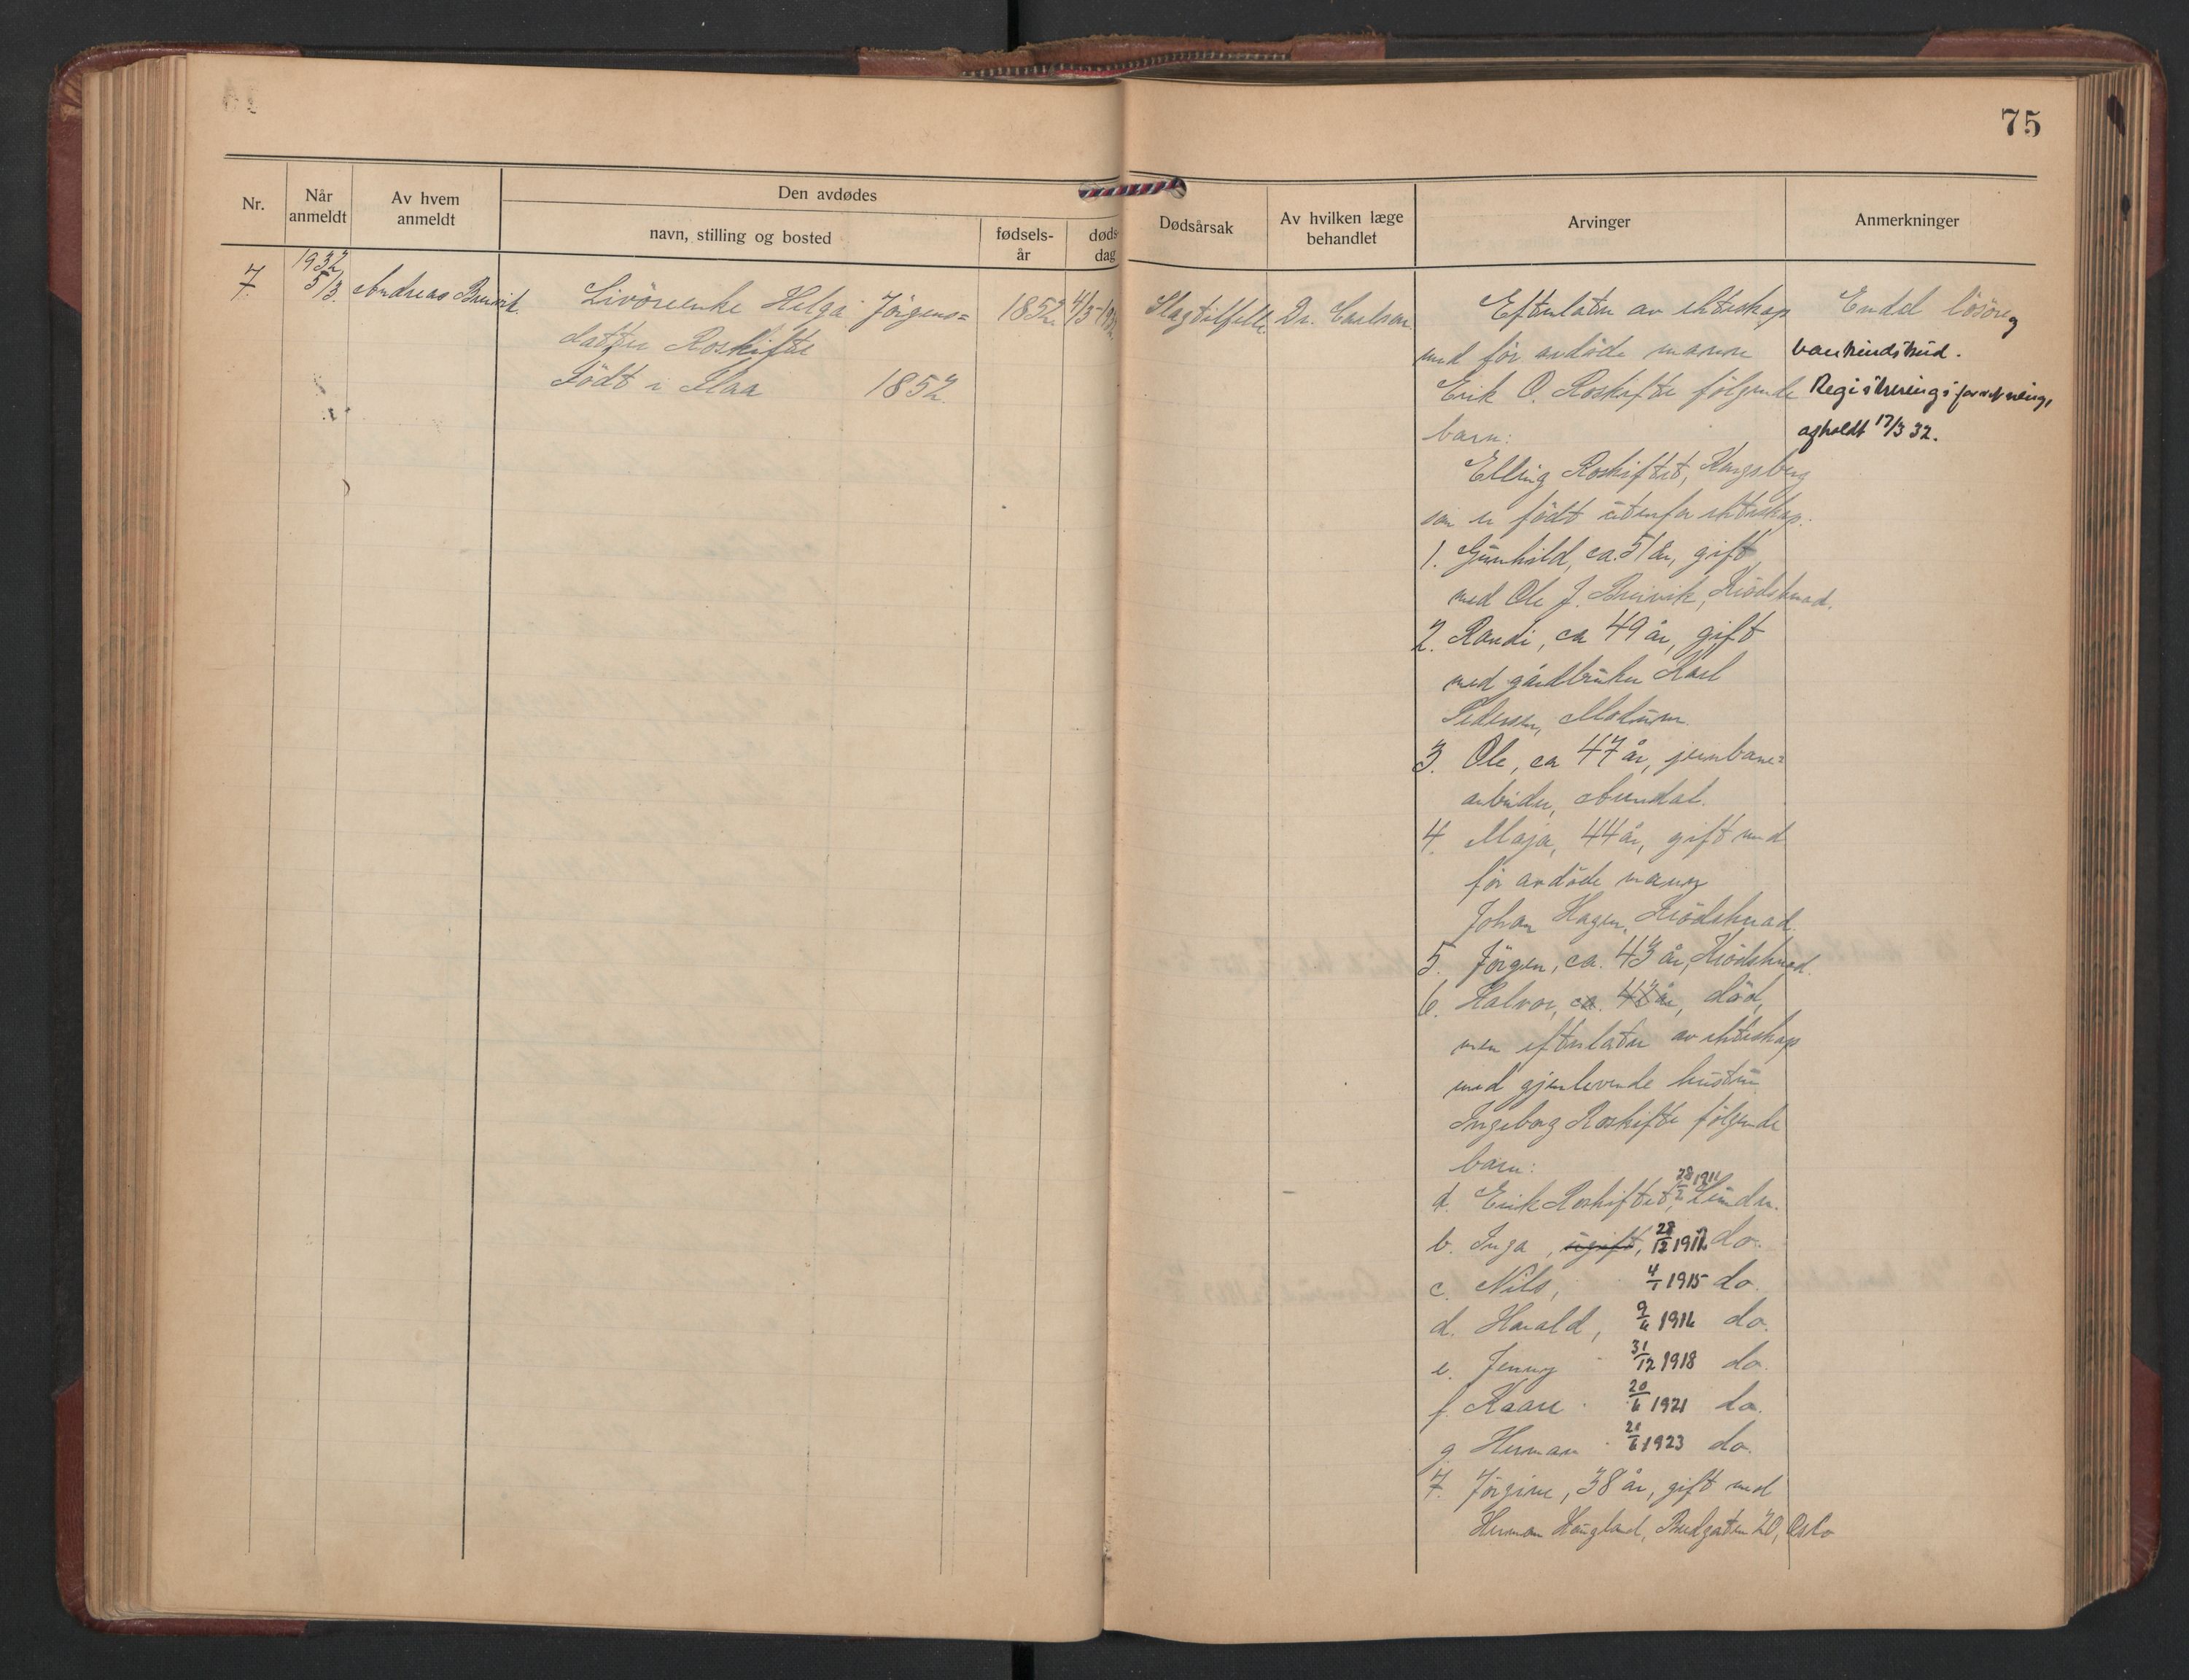 75
Nr.
Når anmeldt
Av hvem anmeldt
Den avdødes
navn, stilling og bosted
fødsels-år
døds-dag
Dødsårsak
Av hvilken læge behandlet
Arvinger
Anmerkninger
7.
1932
5/3.
Andreas Breivik.
Livöreenke Helga Jörgens=
datter Roskifte
Födt i Flaa 1852.
1852
4/3-1932
Slagtilfelle.
Dr. Carlson.
Efterlater av ekteskap
med før avdöde mann
Erik O. Roskifte fölgende
barn:
Elling Roskiftet, Kongsberg
som er födt utenfor ekteskap.
1. Gunhild, ca. 51 år, gift
med Ole J. Breivik, Krödsherad.
2. Randi, ca 49 år, gift
med gårdbruker Karl
Pedersen, Modum.
3. Ole, ca 47 år, jernbane=
arbeider, Arendal.
4. Maja, 44 år, gift med
för avdöde mann
Johan Hagen, Krödsherad.
5. Jörgen, ca. 43 år, Krödsherad.
6. Halvor, ca. 42 år, död,
men efterlater av ekteskap
med gjenlevende hustru
Ingeborg Roskifte fölgende
barn:
a. Erik Roskiftet, 28/2 1911 Lunder.
b. Inga, ugift, 28/12 1912 do.
c. Nils, 4/1 1915 do.
d. Harald, 9/6 1916 do.
e. Jenny 31/12 1918 do.
f. Kaare 20/6 1921 do.
g. Herman 21/6 1923 do.
7. Jörgine, 38 år, gift med
Herman Haugland, Bredgaten 20, Oslo
Endel lösöre og
bankindskud.
Registreringsforretning,
afholdt 17/3 32.